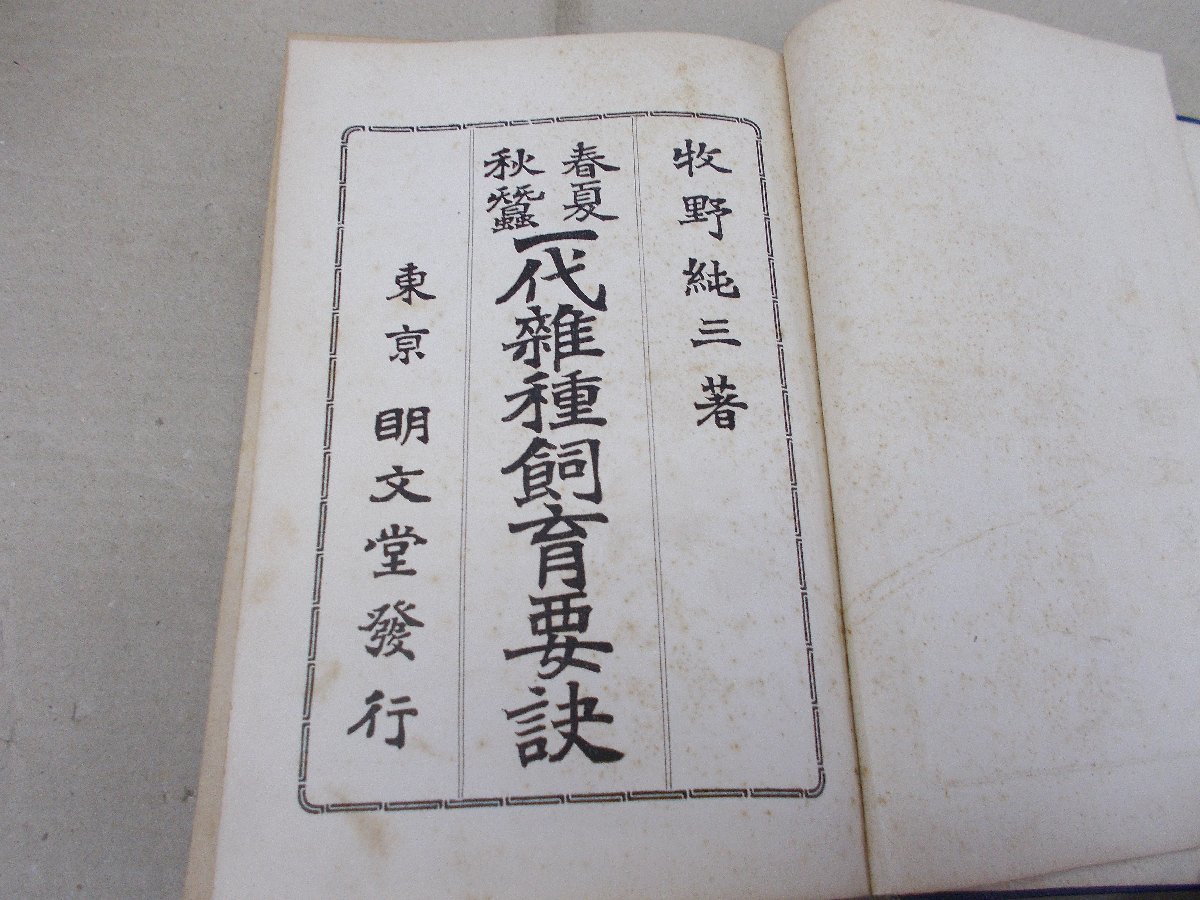 牧野純三著
春夏
秋蠶
一代雜種飼育要訣
東京 明文堂發行